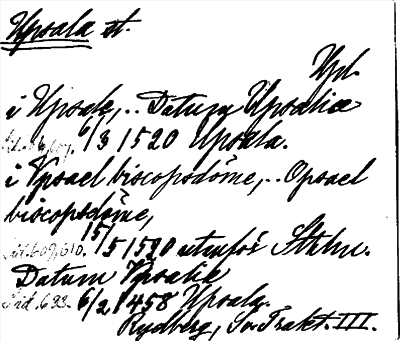 Upsala st.
Upl.
i Upsale, .. Datum Upsalie
Sid. 607. 6/3 1520 Upsala.
i Vpsael biscopsdöme, .. Opsael
biscopsdöme,
Sid. 609, 610. 15/5 1520 utanför Sthlm.
Datum Vpsalie
Sid. 693. 6/2 1458 Upsala.
Rydberg, Sv. Trakt. III.